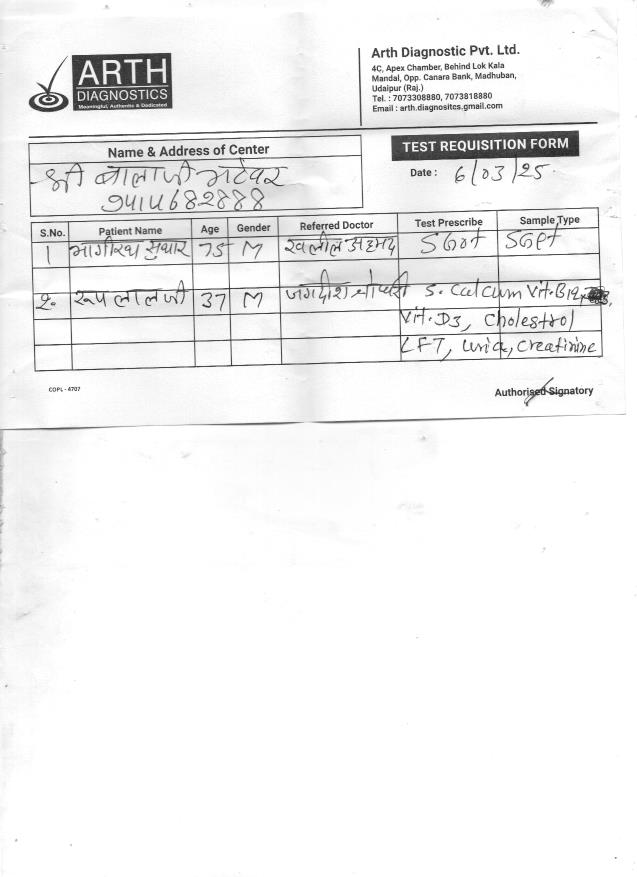 ARTH
DIAGNOSTICS
Meaningful, Authentic & Dedicated
Arth Diagnostic Pvt. Ltd.
4C, Apex Chamber, Behind Lok Kala
Mandal, Opp. Canara Bank, Madhuban,
Udaipur (Raj.)
Tel. : 7073308880, 7073818880
Email : arth.diagnosites.gmail.com
Name & Address of Center
श्री बालाजी भटेवर
9414682888
TEST REQUISITION FORM
Date : 6/03/25
S.No. Patient Name Age Gender Referred Doctor Test Prescribe Sample Type
1 भागीरथ सुथार 75 M खलील अहमद SGot SGpt
2. रूपलाल जी 37 M जगदीश चौधरी S. Calcum Vit. B12,
Vit. D3, Cholestrol
LFT, Uria, Creatinine
COPL - 4707
Authorised Signatory